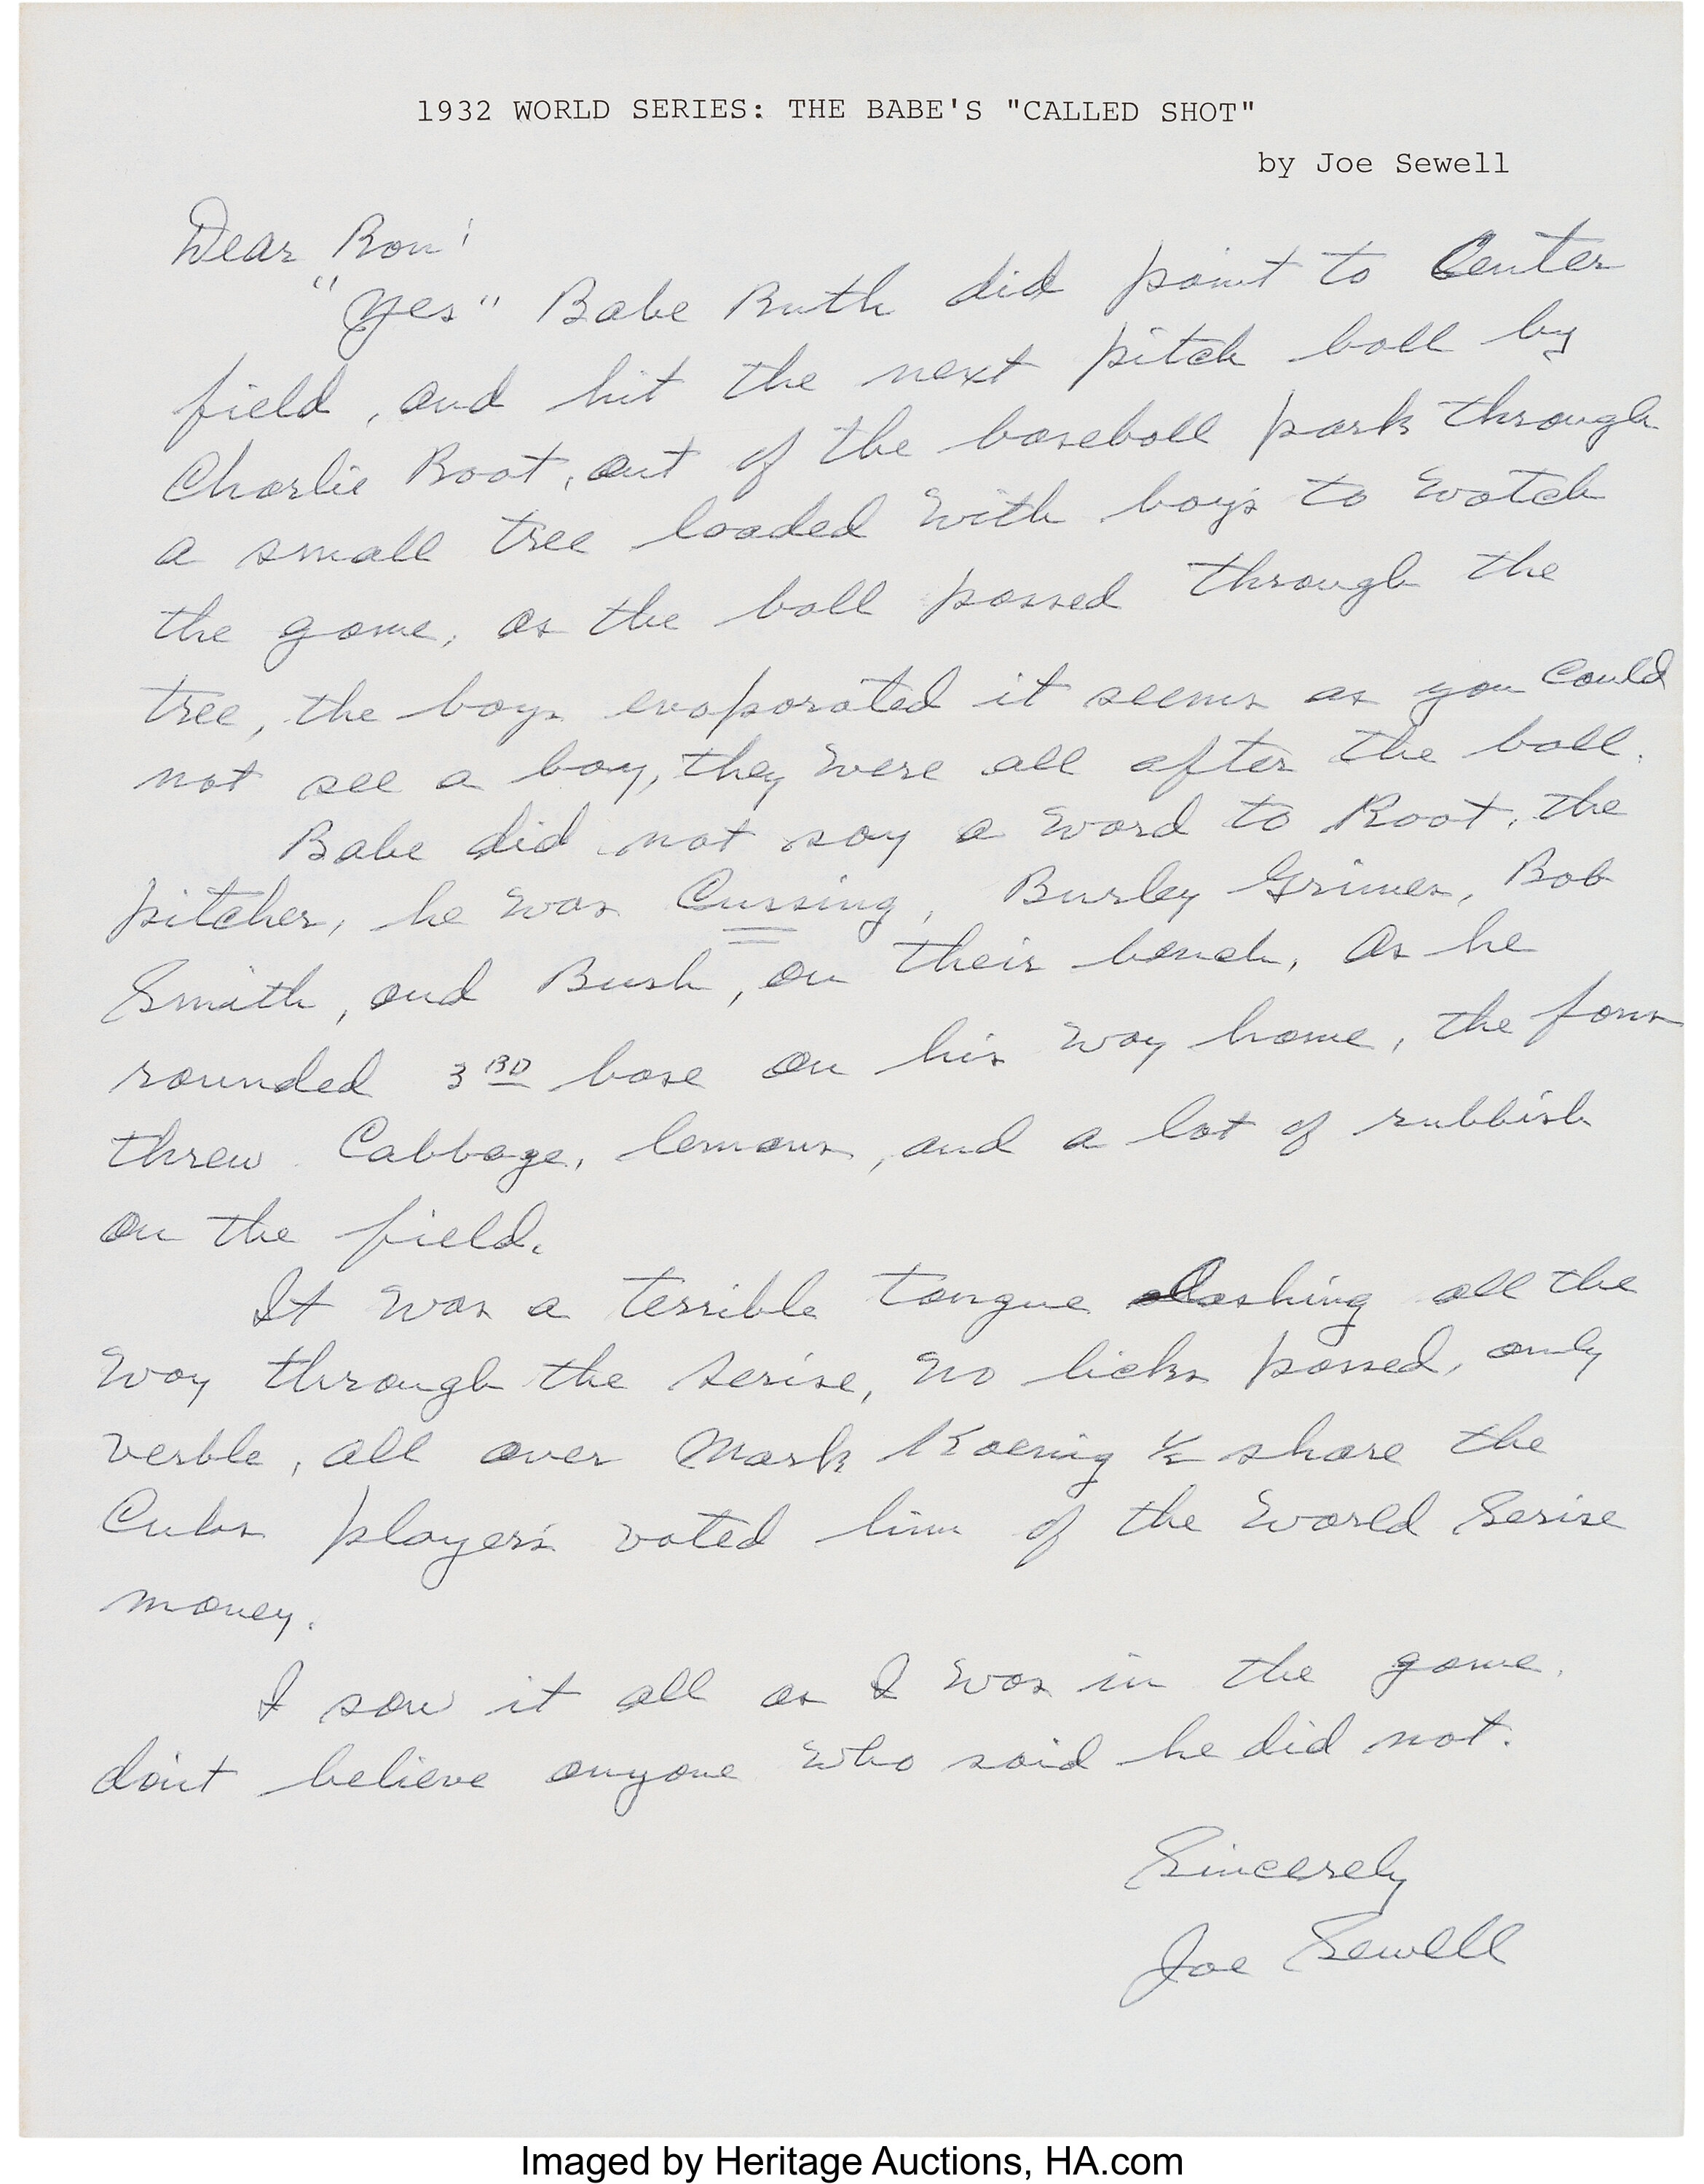 1932 WORLD SERIES: THE BABE'S "CALLED SHOT"
by Joe Sewell
Dear Ron:
"Yes" Babe Ruth did point to Center
field, and hit the next pitch ball by
Charlie Root, out of the baseball park through
a small tree loaded with boys to watch
the game, as the ball passed through the
tree, the boys evaporated it seems as you could
not see a boy, they were all after the ball.
Babe did not say a word to Root, the
pitcher, he was Cussing, Burley Grimes, Bob
Smith, and Bush, on their bench, as he
rounded 3RD base on his way home, the fans
threw Cabbage, lemons, and a lot of rubbish
on the field.
It was a terrible tongue lashing all the
way through the serise, no licks passed, only
verble, all over Mark Koenig ½ share the
Cubs players voted him of the World Serise
money.
I saw it all as I was in the game.
don't believe anyone who said he did not.
Sincerely
Joe Sewell
Imaged by Heritage Auctions, HA.com